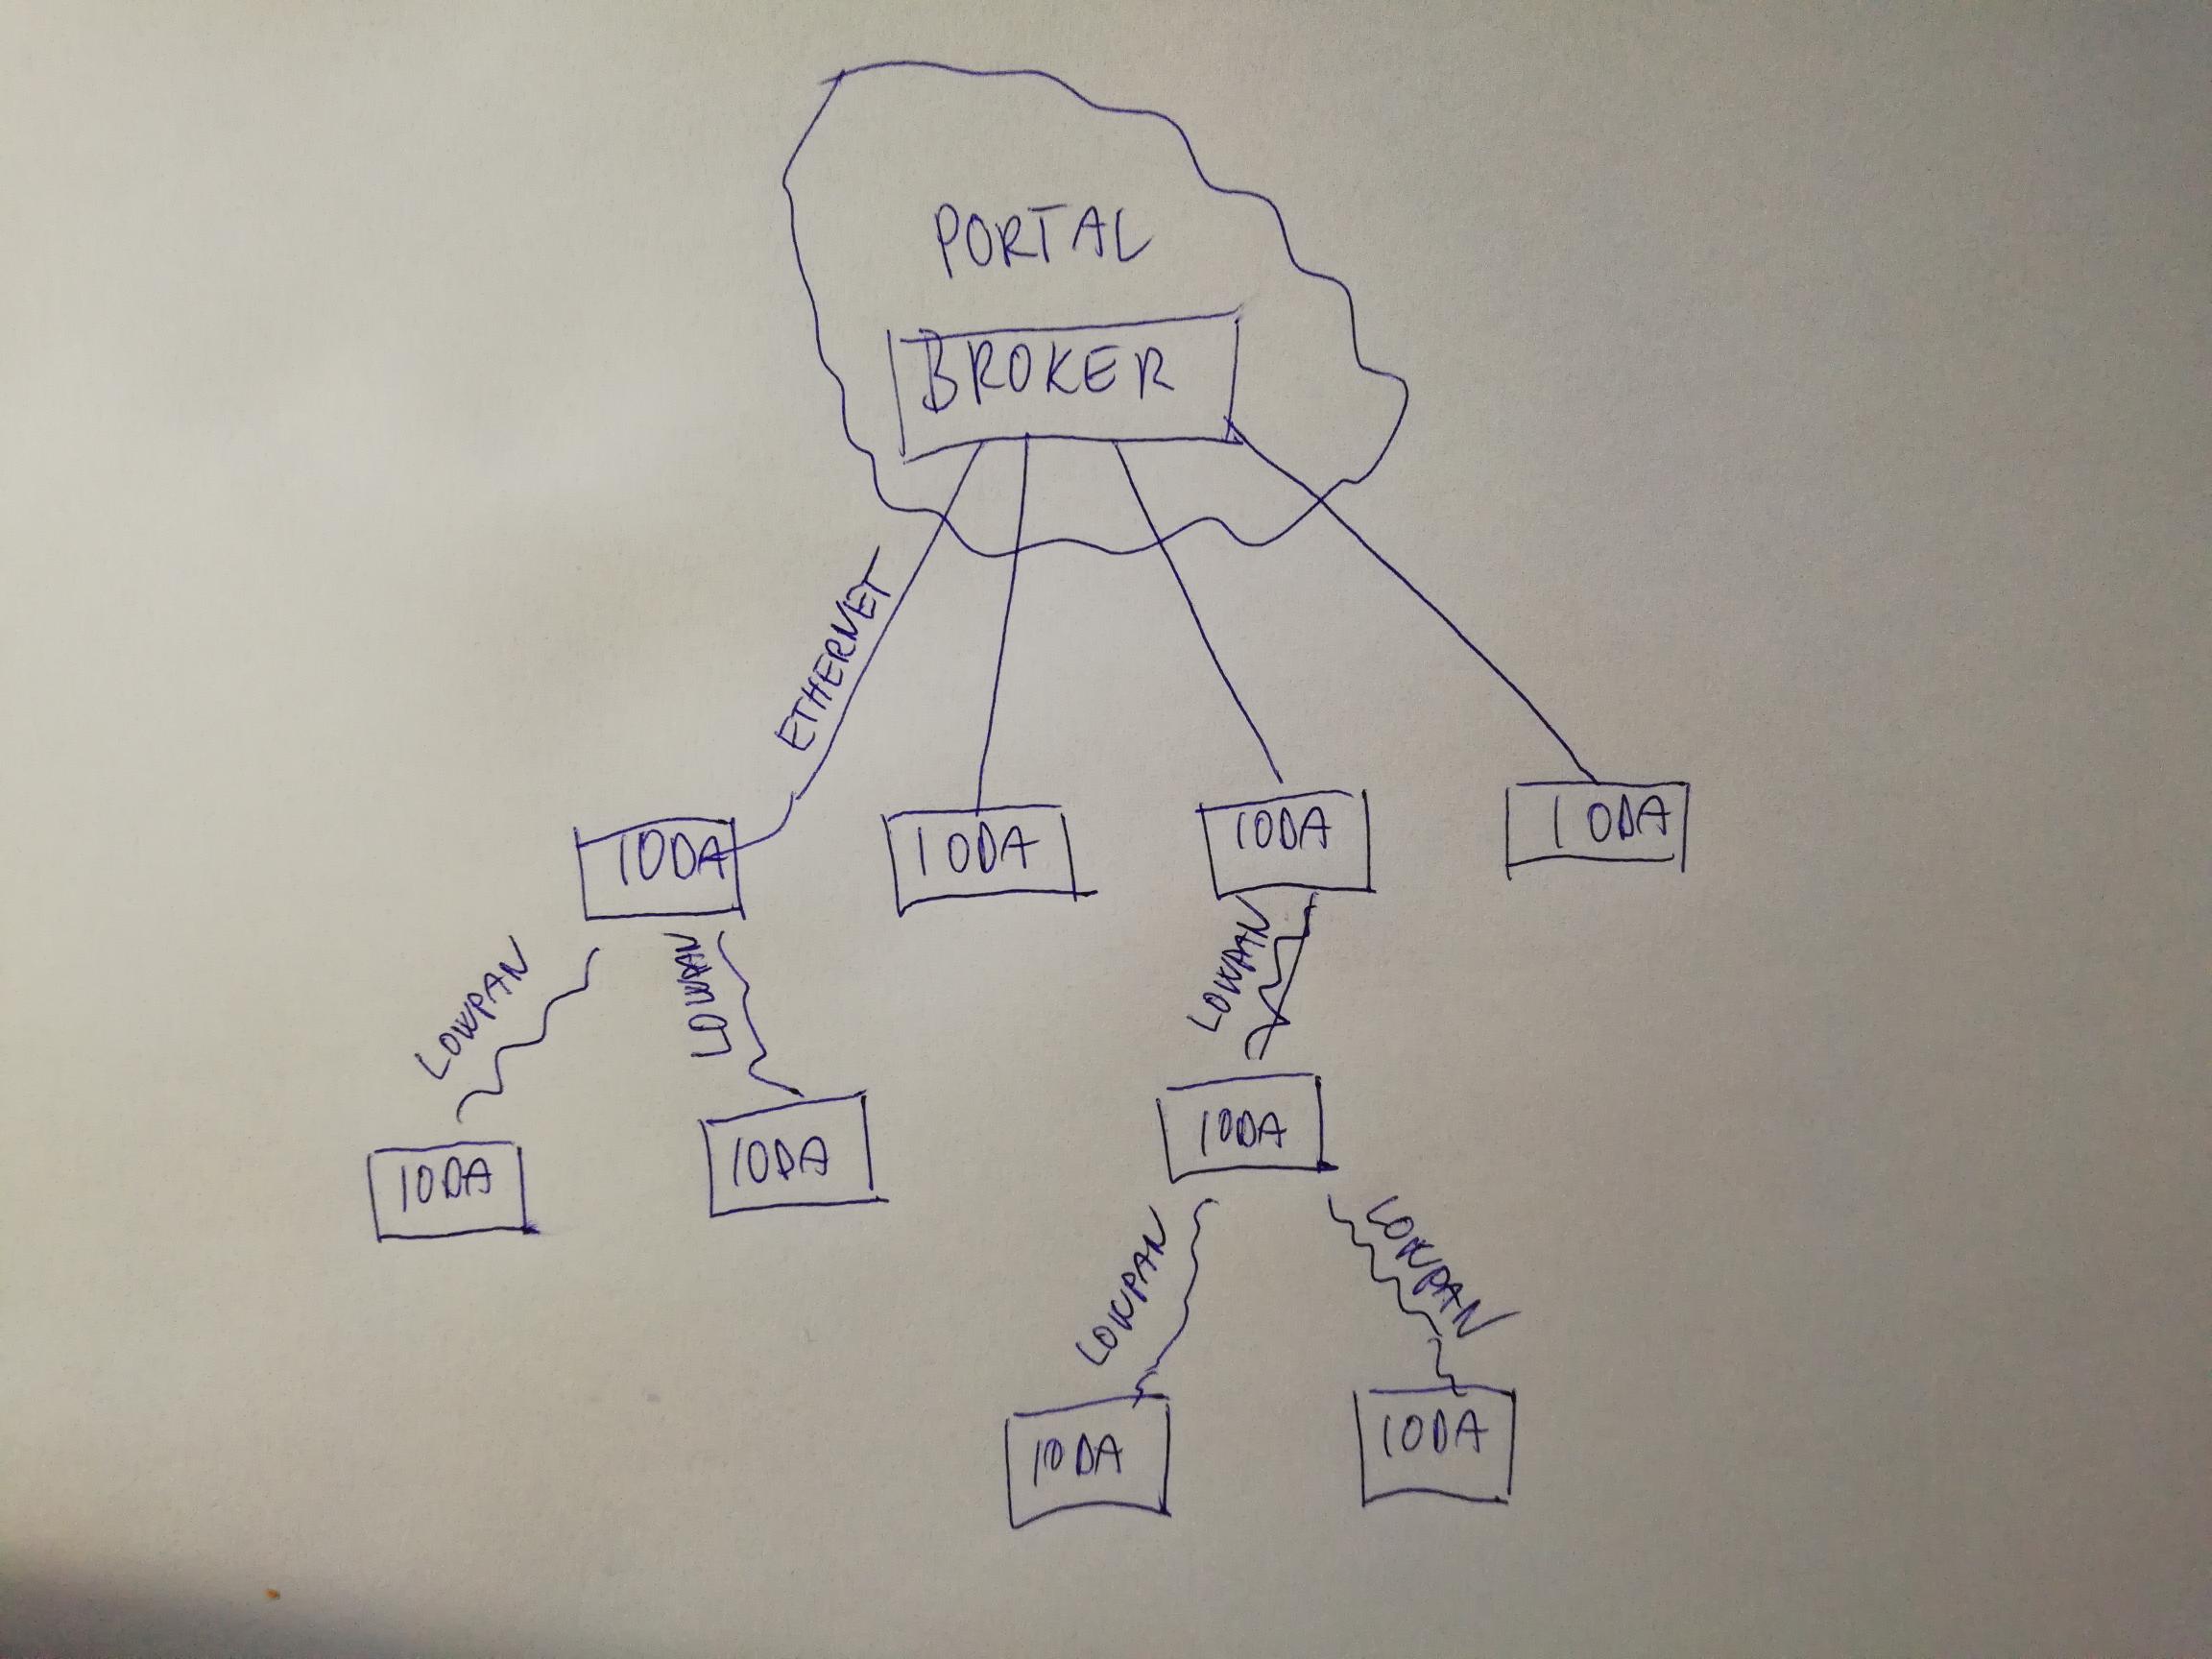 PORTAL
BROKER
ETHERNET
IODA
IODA
IODA
IODA
LOWPAN
LOWPAN
LOWPAN
IODA
IODA
IODA
LOWPAN
LOWPAN
IODA
IODA